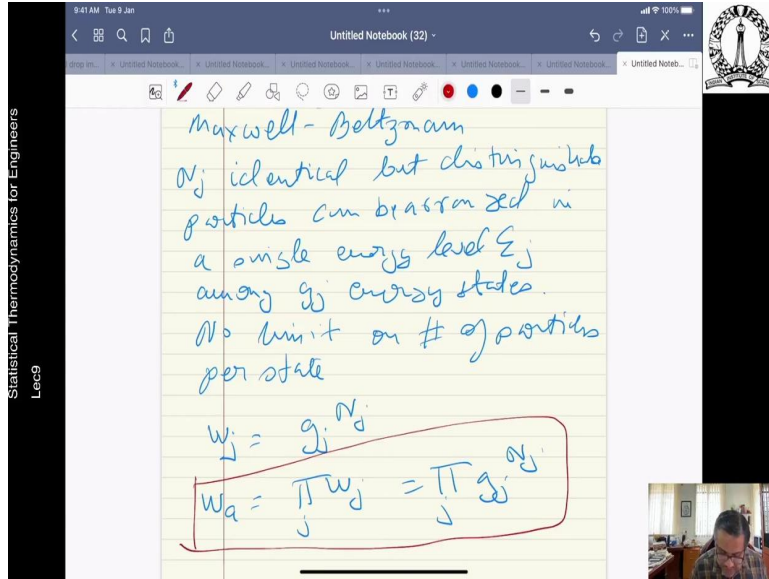 9:41 AM Tue 9 Jan
100%
Untitled Notebook (32)
drop im...
× Untitled Notebook...
× Untitled Notebook...
× Untitled Notebook...
× Untitled Notebook...
× Untitled Notebook...
× Untitled Notebook...
× Untitled Noteb...
Statistical Thermodynamics for Engineers
Lec9
Maxwell - Boltzmann
Nj identical but distinguishable
particles can be arranged in
a single energy level Ɛj
among gj energy states.
No limit on # of particles
per state
Wj = gj^Nj
Wa = ∏j Wj = ∏j gj^Nj